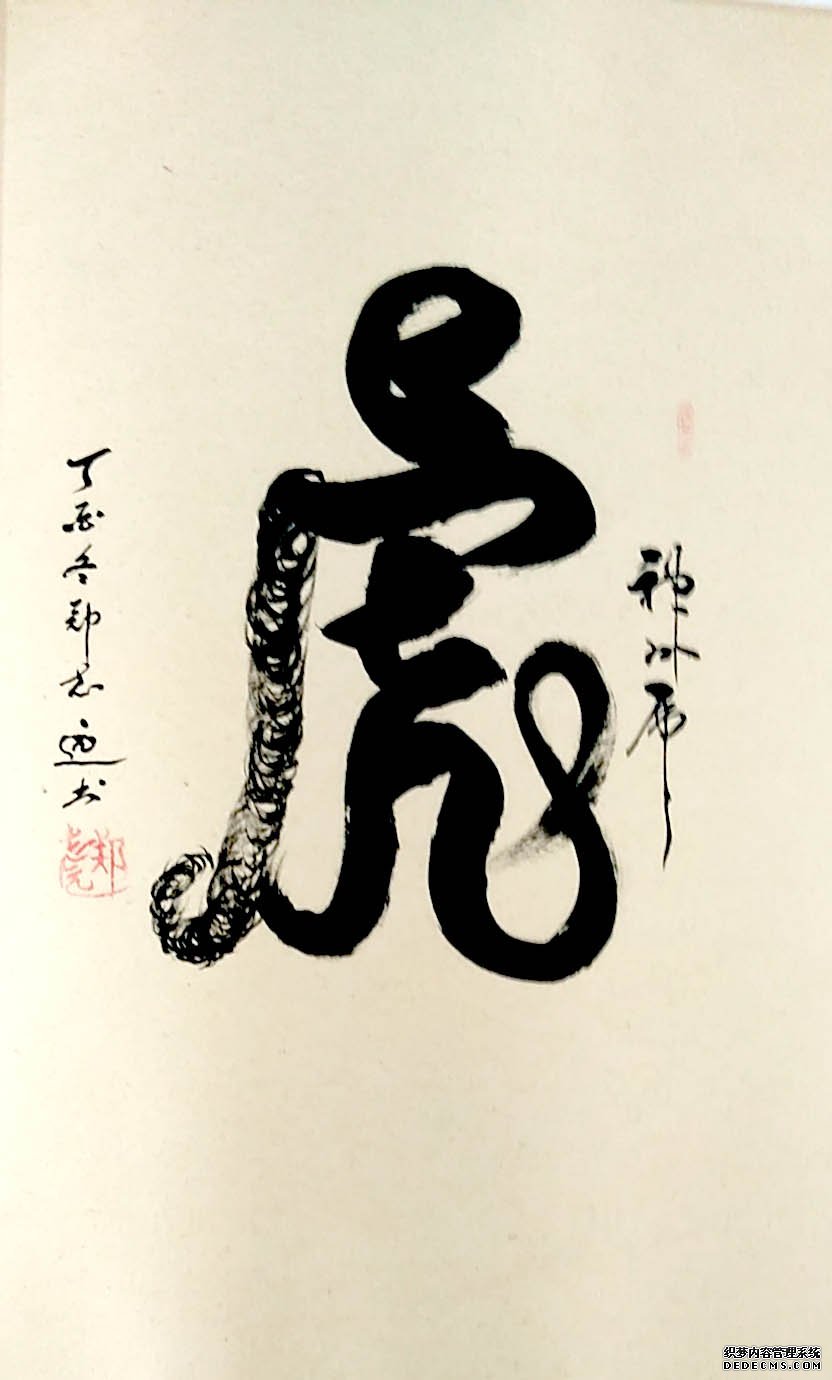 神州虎
虎
丁酉冬郑志书
织梦内容管理系统
DEDECMS.COM